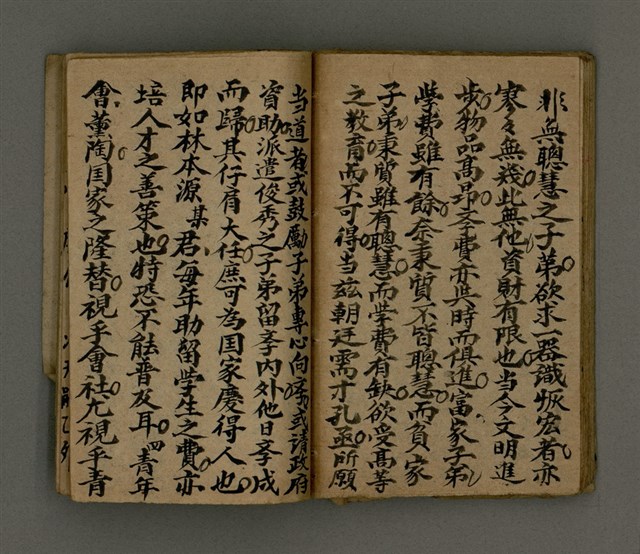 非無聰慧之子弟欲求一器識恢宏者亦
寥々無幾此無他資財有限也当今文明進
步物品髙昂孝費亦與時而俱進富家子弟
學費雖有餘奈秉質不皆聰慧而負家
子弟秉質雖有聰慧而学費有缺欲受髙等
之教育而不可得当兹朝廷需才孔亟所願
当道者或鼓勵子弟專心向孝或請政府
資助派遣俊秀之子弟留孝内外他日孝成
而歸其仔肩大任庶可為国家慶得人也
即如林本源某君每年助留学生之費亦
培人才之善策也特恐不能普及耳四青年
會薫陶国家之隆替視乎會社尤視乎青